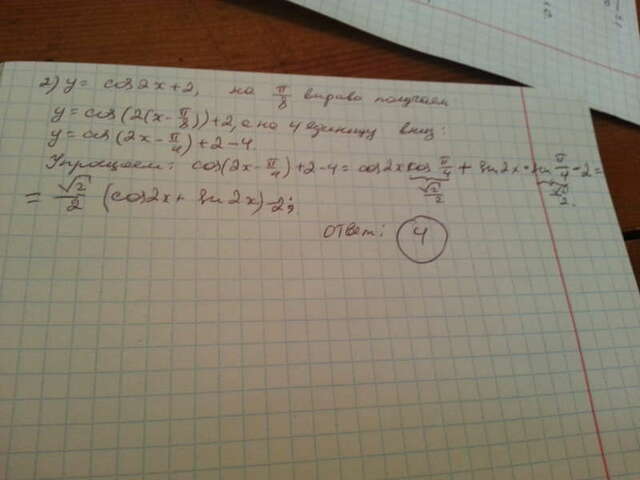 2) y = cos2x+2, на π/8 вправо получаем
y = cos(2(x-π/8))+2, а на 4 единицу вниз:
y = cos(2x-π/4)+2-4.
Упрощаем: cos(2x-π/4)+2-4 = cos2x cos π/4 + sin2x·sin π/4 - 2 =
√2/2 √2/2.
= √2/2 (cos2x + sin2x)-2;
Ответ: 4